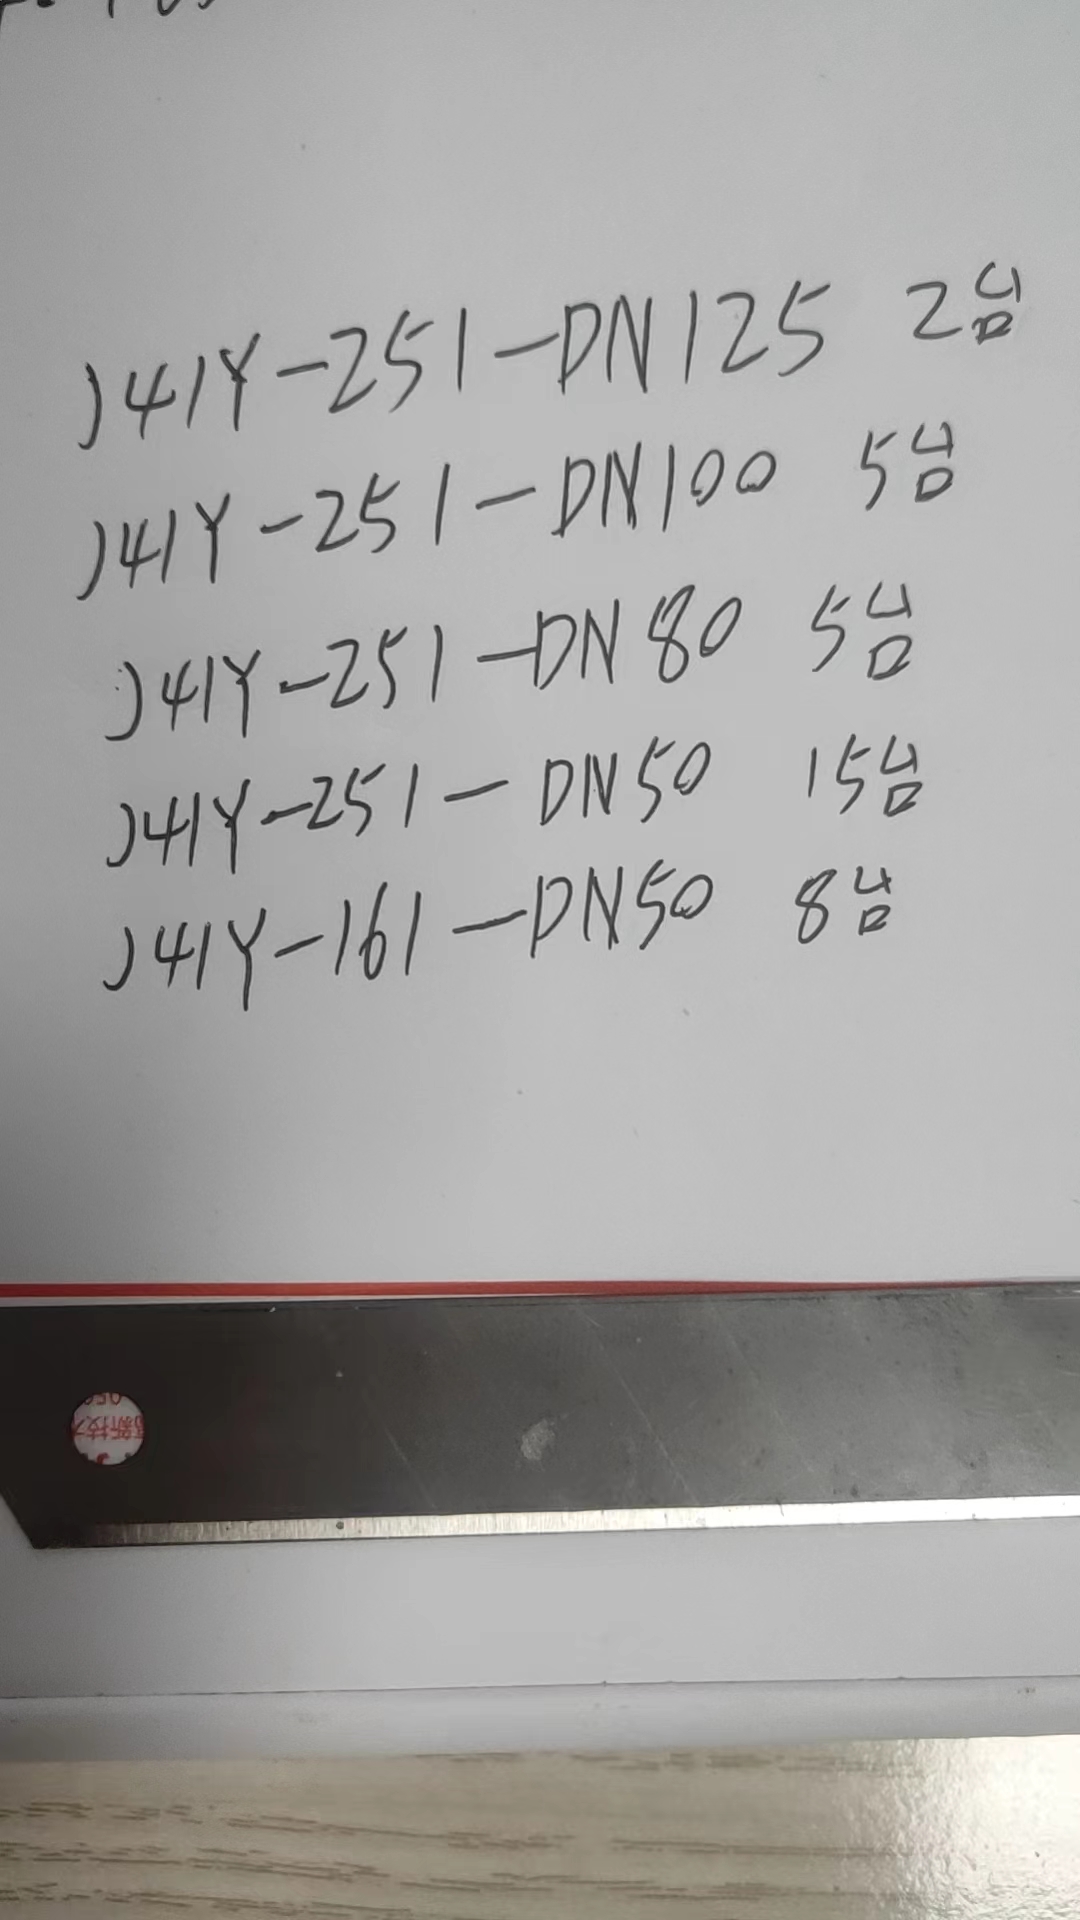 J41Y-251-DN125 2台
J41Y-251-DN100 5台
J41Y-251-DN80 5台
J41Y-251-DN50 15台
J41Y-161-DN50 8台